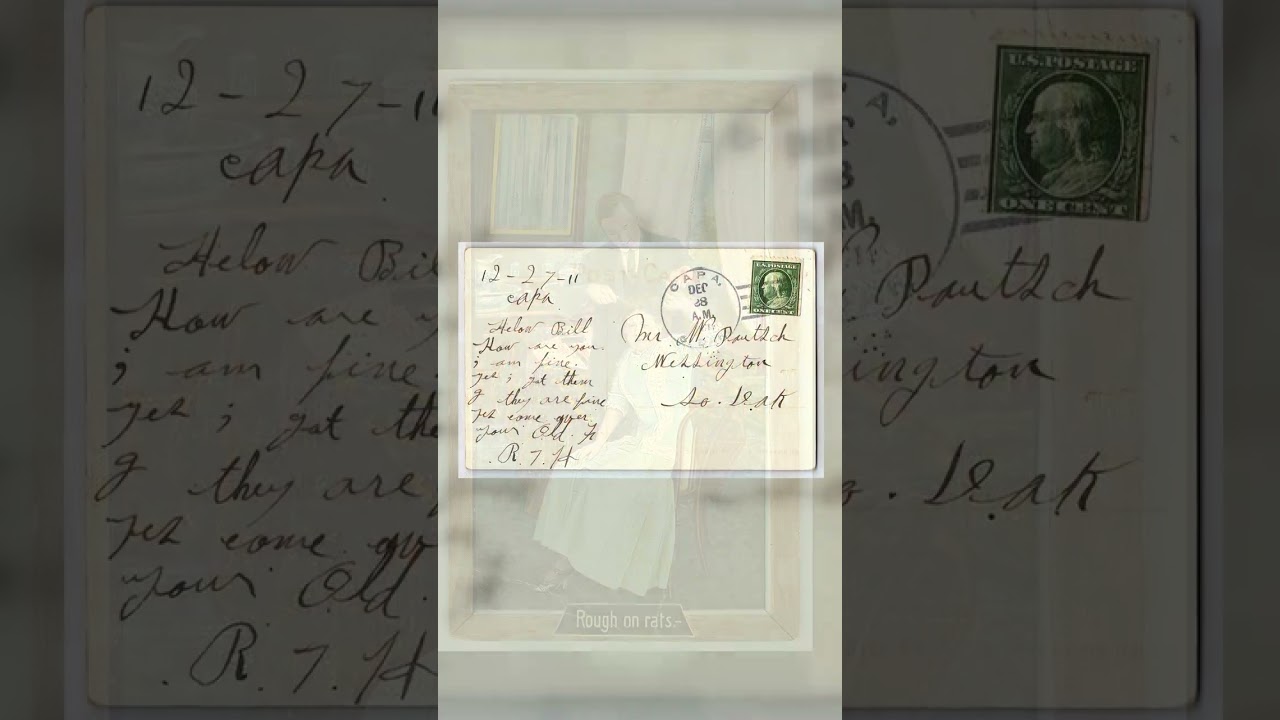 12-27-11
capa
Helow Bill
How are you.
i am fine.
yes i got them
& they are fine
yes come over
your Old. F
R. T. H
CAPA,
DEC
28
A.M.
U.S. POSTAGE
ONE CENT
Mr W. Pautsch
Wessington
So. Dak
Rough on rats.-